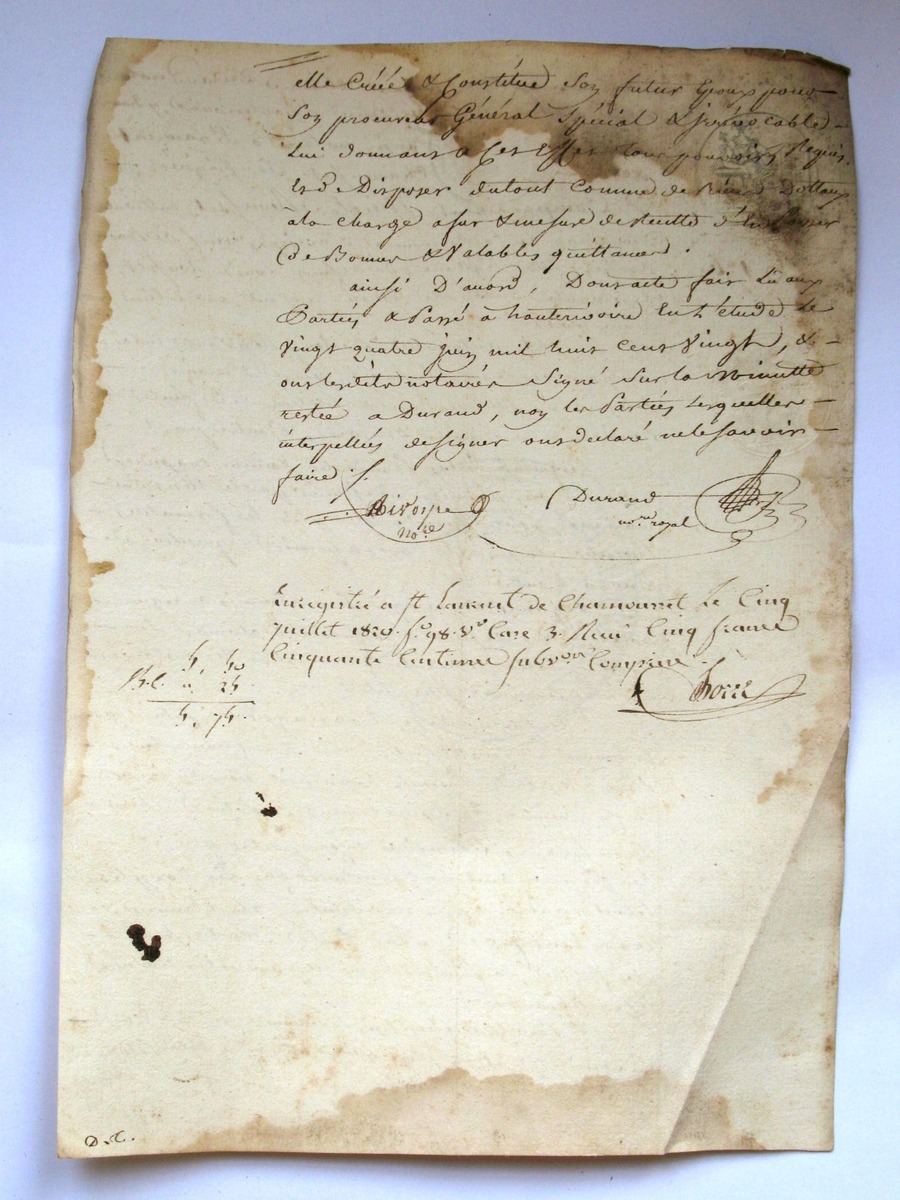 elle Créé & Constitue Son futur Epoux pour
Son procureur Général Spécial & irrévocable
Lui donnant a Cet Effet tous pouvoirs Requis
Et de Disposer dutout Comme de biens Dottaux
à la charge a fur & mesure de Recette d'En Passer
de Bonnes & Valables quittances.
ainsi D'acord, Dont acte fait Lu aux
Parties & Passé a hauterivoire En L'étude Le
Vingt quatre juin mil huit cent Vingt, &
ont lesdits notaires Signé Sur la Minutte
restée a Durand, non les Parties Lesquelles
interpellées de signer ont declaré ne le Savoir
faire ./.
nore
Durand
nore royal
Enregistré a St Laurent de Chamousset Le Cinq
juillet 1820. fo 98. Vo Case 3. Reçu Cinq francs
Cinquante Centimes Subvon Comprise
5 50
25
5.75.
D. C.